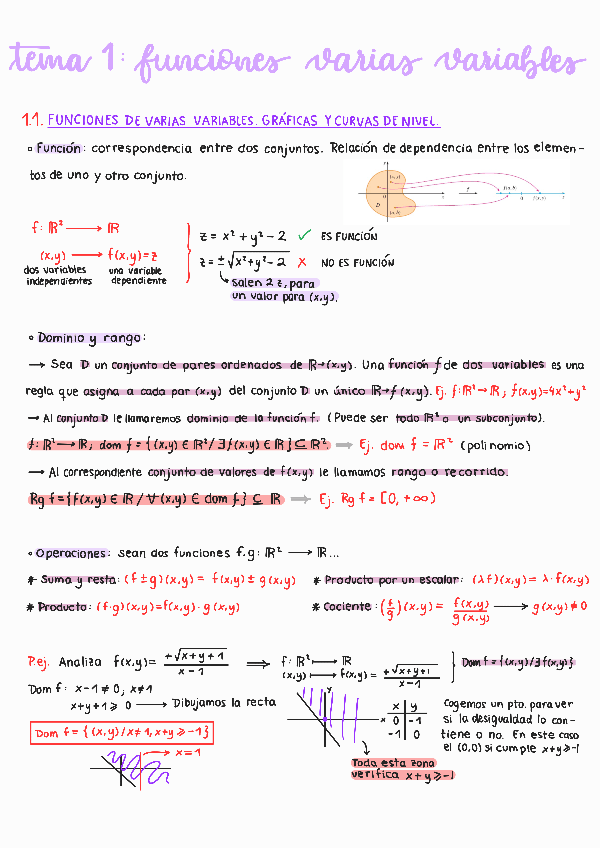 tema 1: funciones varias variables
1.1. FUNCIONES DE VARIAS VARIABLES. GRÁFICAS Y CURVAS DE NIVEL.
∘ Función: correspondencia entre dos conjuntos. Relación de dependencia entre los elemen-
tos de uno y otro conjunto.
f: ℝ² ⟶ ℝ
(x,y) ⟶ f(x,y)=z
dos variables independientes
una variable dependiente
z = x² + y² - 2 ✓ ES FUNCIÓN
z = ±√x²+y²-2 ✗ NO ES FUNCIÓN
↳ salen 2 z, para
un valor para (x,y).
∘ Dominio y rango:
→ Sea D un conjunto de pares ordenados de ℝ→(x,y). Una función f de dos variables es una
regla que asigna a cada par (x,y) del conjunto D un único ℝ→f(x,y). Ej. f:ℝ²→ℝ; f(x,y)=4x²+y²
→ Al conjunto D le llamaremos dominio de la función f. (Puede ser todo ℝ² o un subconjunto).
f: ℝ²⟶ℝ; dom f = {(x,y) ∈ ℝ²/∃ f(x,y) ∈ ℝ} ⊆ ℝ² ⟶ Ej. dom f = ℝ² (polinomio)
→ Al correspondiente conjunto de valores de f(x,y) le llamamos rango o recorrido.
Rg f = {f(x,y) ∈ ℝ / ∀ (x,y) ∈ dom f.} ⊆ ℝ ⟶ Ej. Rg f = [0, +∞)
∘ Operaciones: sean dos funciones f.g: ℝ² ⟶ ℝ...
* Suma y resta: (f ± g)(x,y) = f(x,y) ± g(x,y)
* Producto por un escalar: (λf)(x,y) = λ·f(x,y)
* Producto: (f·g)(x,y)=f(x,y)·g(x,y)
* Cociente: (f/g)(x,y) = f(x,y)/g(x,y) ⟶ g(x,y)≠0
P.ej. Analiza f(x,y)= +√x+y+1/x-1 ⟹ f: ℝ² ⟼ ℝ
(x,y) ⟼ f(x,y) = +√x+y+1/x-1
Dom f = {(x,y)/∃f(x,y)}
Dom f: x-1≠0; x≠1
x+y+1 ⩾ 0 ⟶ Dibujamos la recta
Dom f = {(x,y)/x≠1, x+y ⩾ -1}
→ x=1
y
x
x y
0 -1
-1 0
Toda esta zona
verifica x+y⩾-1
Cogemos un pto. para ver
si la desigualdad lo con-
tiene o no. En este caso
el (0,0) si cumple x+y⩾-1